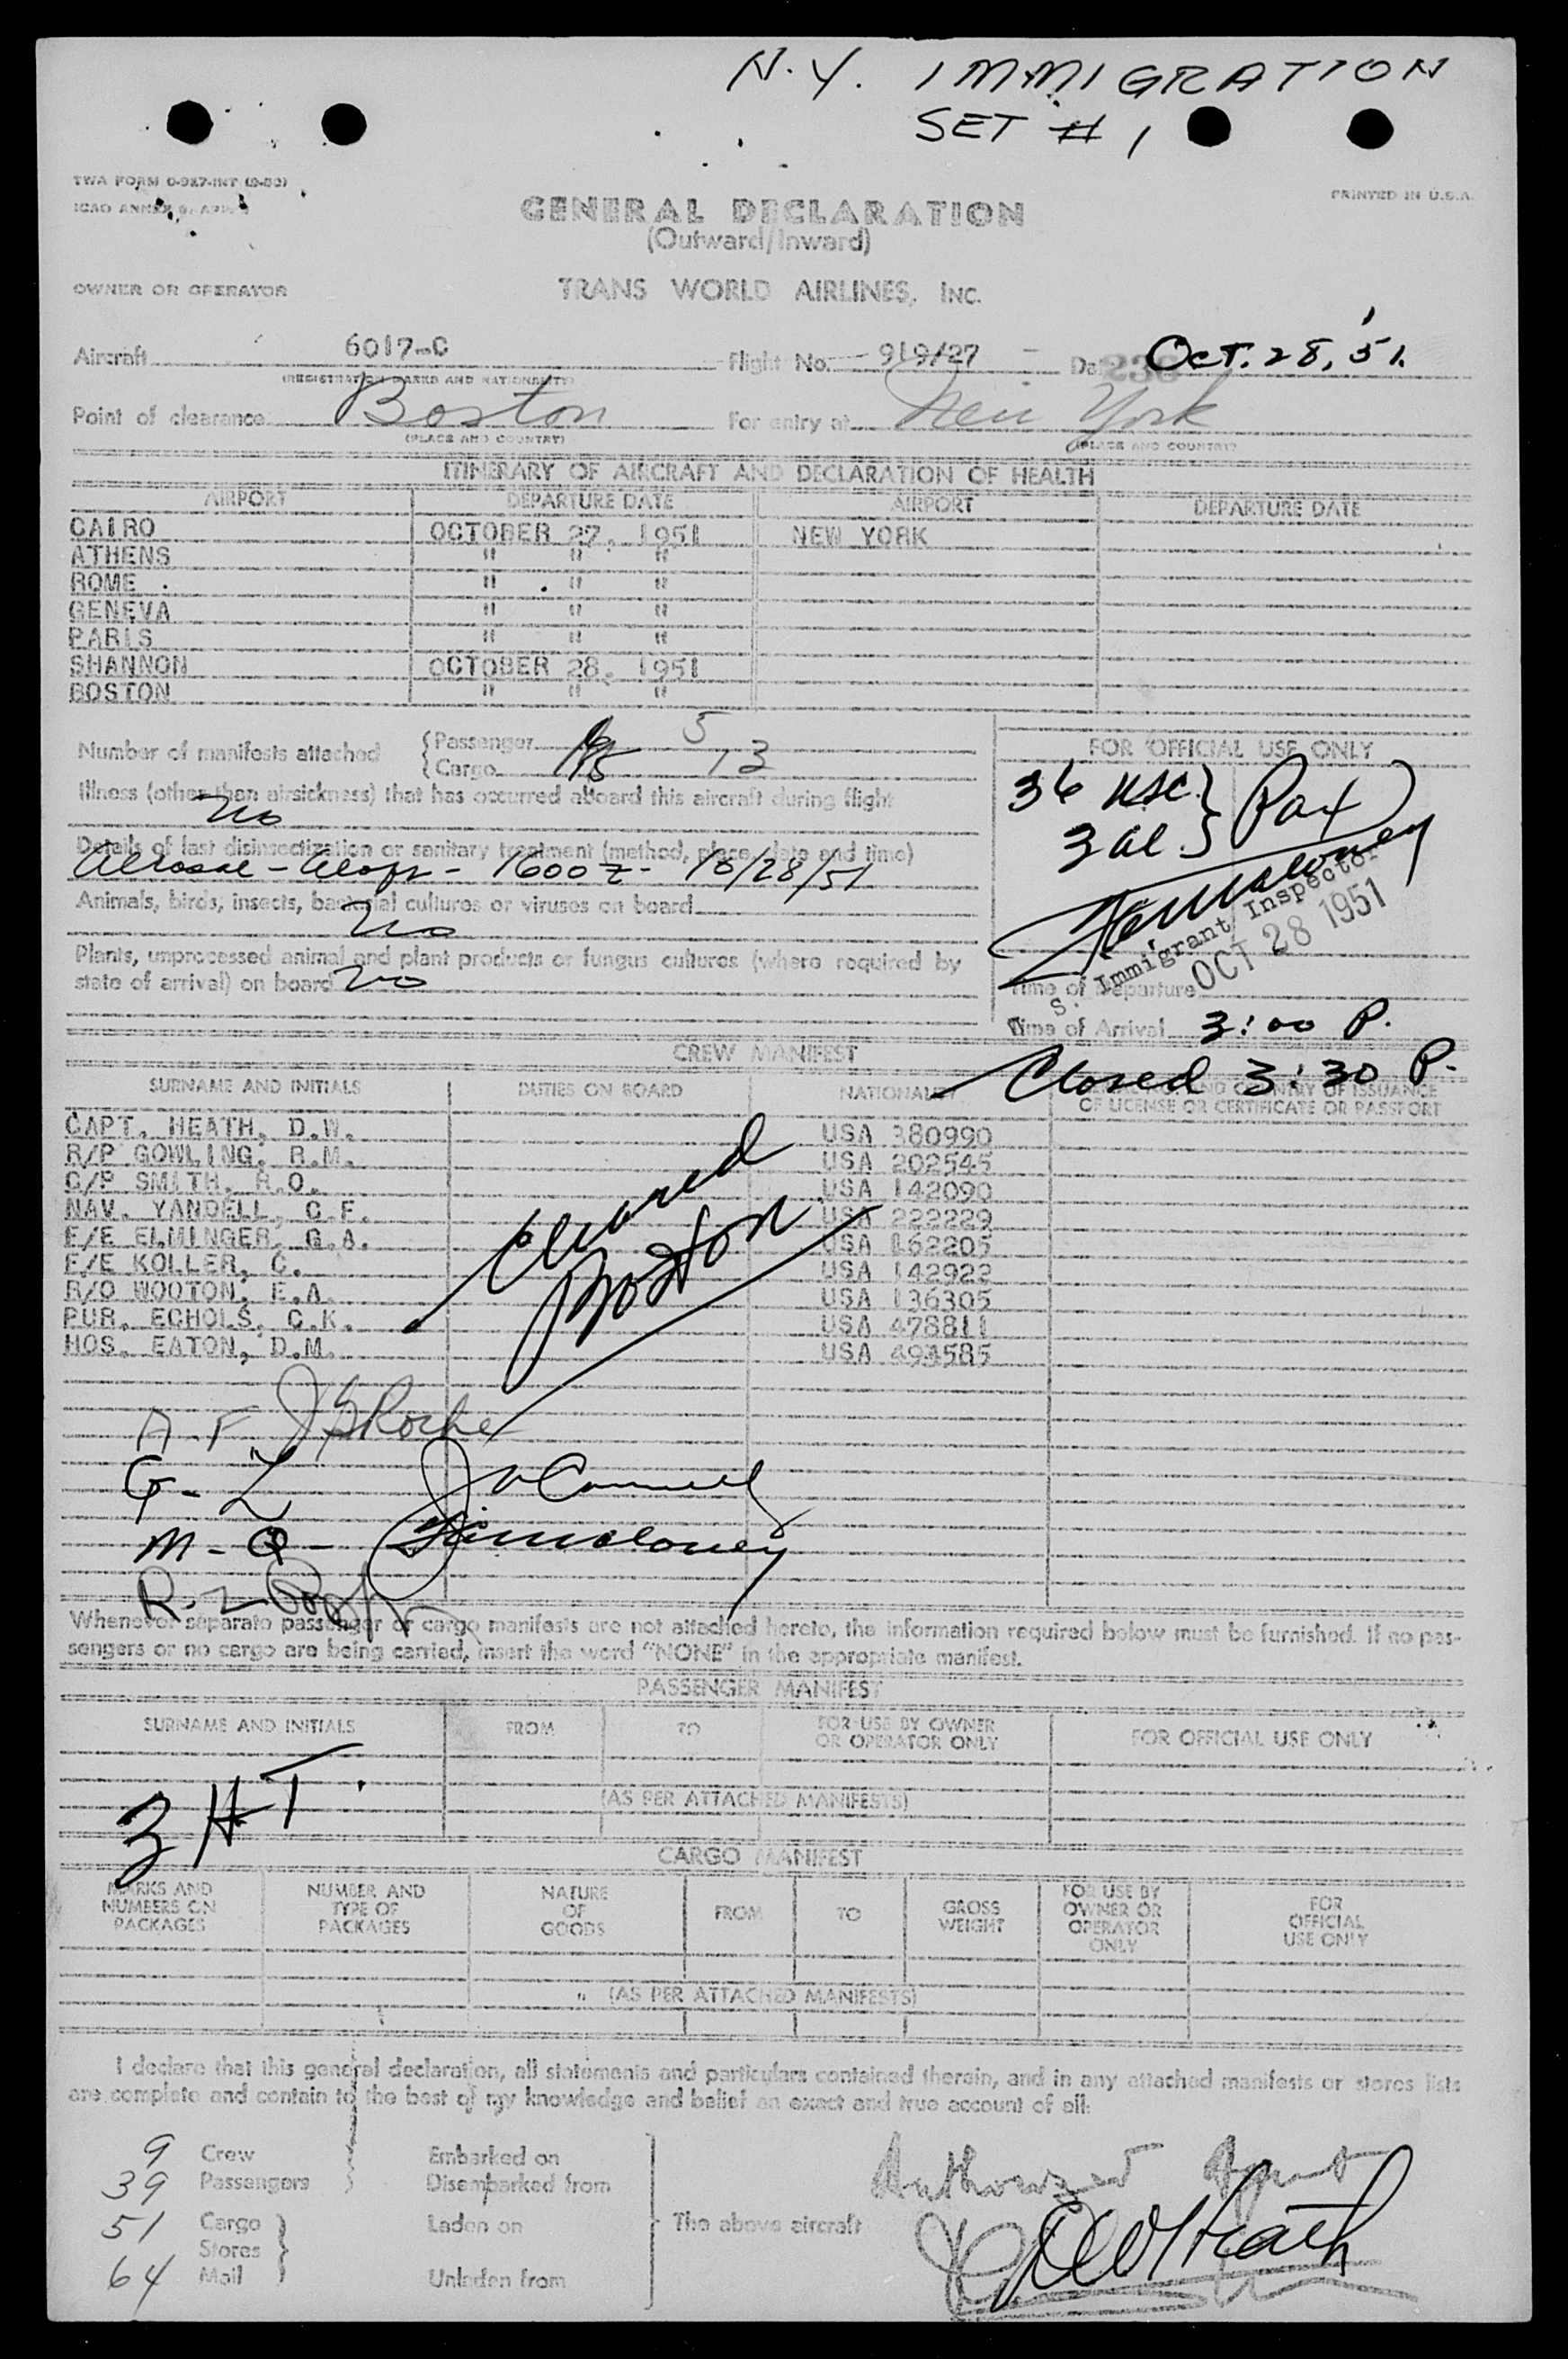 N.Y. IMMIGRATION
SET # 1
TWA FORM
PRINTED IN U.S.A.
GENERAL DECLARATION
(Outward/Inward)
OWNER OR OPERATOR TRANS WORLD AIRLINES, INC.
Aircraft 6017-C Flight No. 919/27 Oct. 28, '51.
(REGISTRATION MARKS AND NATIONALITY)
Point of clearance Boston For entry at New York
(PLACE AND COUNTRY) (PLACE AND COUNTRY)
ITINERARY OF AIRCRAFT AND DECLARATION OF HEALTH
AIRPORT DEPARTURE DATE AIRPORT DEPARTURE DATE
CAIRO OCTOBER 27, 1951 NEW YORK
ATHENS " " "
ROME " " "
GENEVA " " "
PARIS " " "
SHANNON OCTOBER 28, 1951
BOSTON " " "
Number of manifests attached
Passenger 5
Cargo 13
FOR OFFICIAL USE ONLY
36 USC } Pax
3 al.
Illness (other than airsickness) that has occurred aboard this aircraft during flight
no
Details of last disinsectization or sanitary treatment (method, place, date and time)
1600 Z - 10/28/51
Animals, birds, insects, bacterial cultures or viruses on board
no
Plants, unprocessed animal and plant products or fungus cultures (where required by
state of arrival) on board no
S. Immigrant Inspector
OCT 28 1951
Time of Departure
Time of Arrival 3:00 P.
Closed 3:30 P.
CREW MANIFEST
SURNAME AND INITIALS DUTIES ON BOARD NATIONALITY
COUNTRY OF ISSUANCE
OF LICENSE OR CERTIFICATE OR PASSPORT
CAPT. HEATH, D.W. USA 380990
R/P GOWLING, R.M. USA 202545
C/P SMITH, R.O. USA 142090
NAV. YANDELL, C.F. USA 222229
F/E ELMINGER, G.A. USA 162205
F/E KOLLER, C. USA 142922
R/O WOOTON, E.A. USA 136305
PUR. ECHOLS, C.K. USA 478811
HOS. EATON, D.M. USA 494585
Cleared
Boston
A. F. Roche
G - Z J O'Connell
M - Q -
R - Z
Whenever separate passenger or cargo manifests are not attached hereto, the information required below must be furnished. If no pas-
sengers or no cargo are being carried, insert the word "NONE" in the appropriate manifest.
PASSENGER MANIFEST
SURNAME AND INITIALS FROM TO FOR USE BY OWNER OR OPERATOR ONLY FOR OFFICIAL USE ONLY
(AS PER ATTACHED MANIFESTS)
3 HT.
CARGO MANIFEST
MARKS AND NUMBERS ON PACKAGES NUMBER AND TYPE OF PACKAGES NATURE OF GOODS FROM TO GROSS WEIGHT FOR USE BY OWNER OR OPERATOR ONLY FOR OFFICIAL USE ONLY
(AS PER ATTACHED MANIFESTS)
I declare that this general declaration, all statements and particulars contained therein, and in any attached manifests or stores lists
are complete and contain to the best of my knowledge and belief an exact and true account of all:
9 Crew Embarked on
39 Passengers Disembarked from
51 Cargo Laden on The above aircraft
Stores
64 Mail Unladen from
Authorized Agent
DW Heath